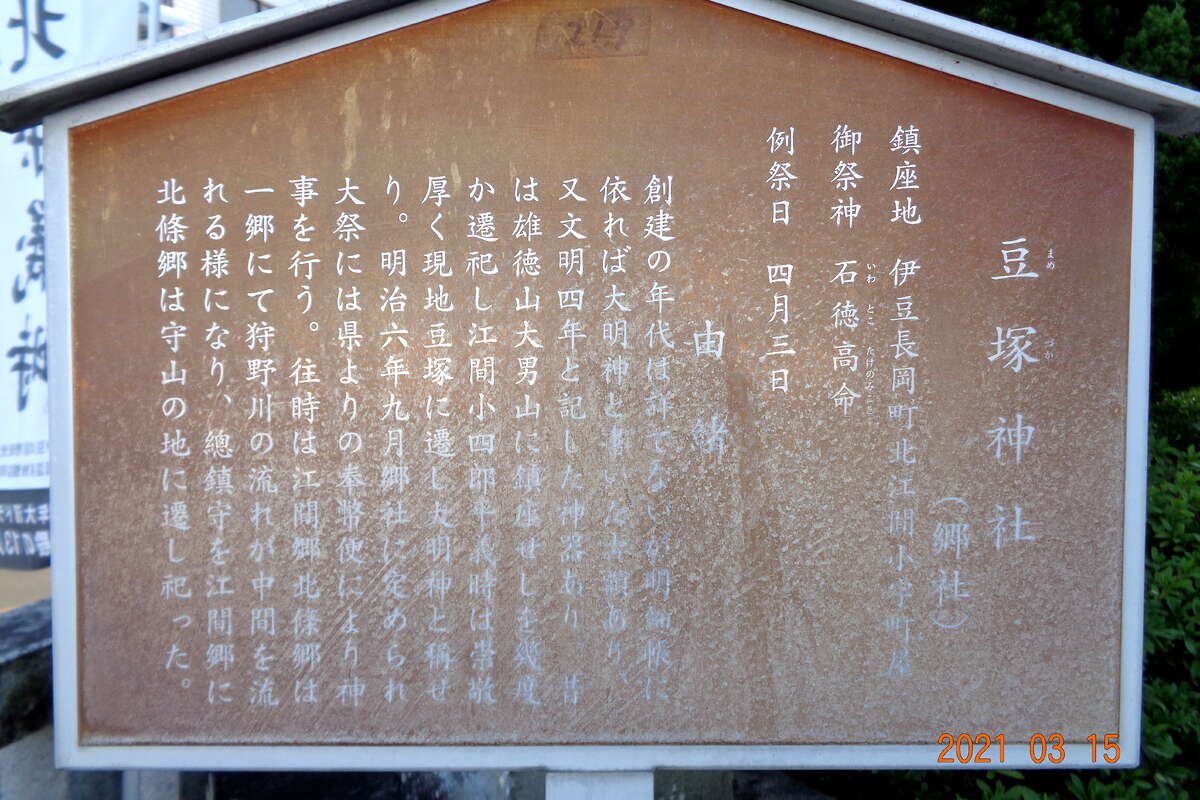 豆塚神社
まめ づか
(郷社)
鎮座地 伊豆長岡町北江間小字町屋
御祭神 石徳高命
いわ とこ たけのみこと
例祭日 四月三日
由緒
創建の年代は詳でないが明細帳に
依れば大明神と書いた古額あり、
又文明四年と記した神器あり。昔
は雄徳山大男山に鎮座せしを幾度
か遷祀し江間小四郎平義時は崇敬
厚く現地豆塚に遷し大明神と稱せ
り。明治六年九月郷社に定められ
大祭には県よりの奉幣使により神
事を行う。往時は江間郷北條郷は
一郷にて狩野川の流れが中間を流
れる様になり、總鎮守を江間郷に
北條郷は守山の地に遷し祀った。
2021 03 15